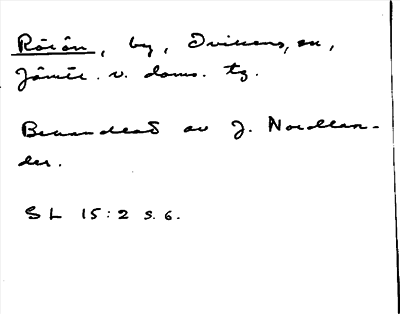 Röiån, by, Ovikens sn,
Jämtl. v. doms. tg.
Behandlad av J. Nordlan-
der.
SL 15:2 s. 6.